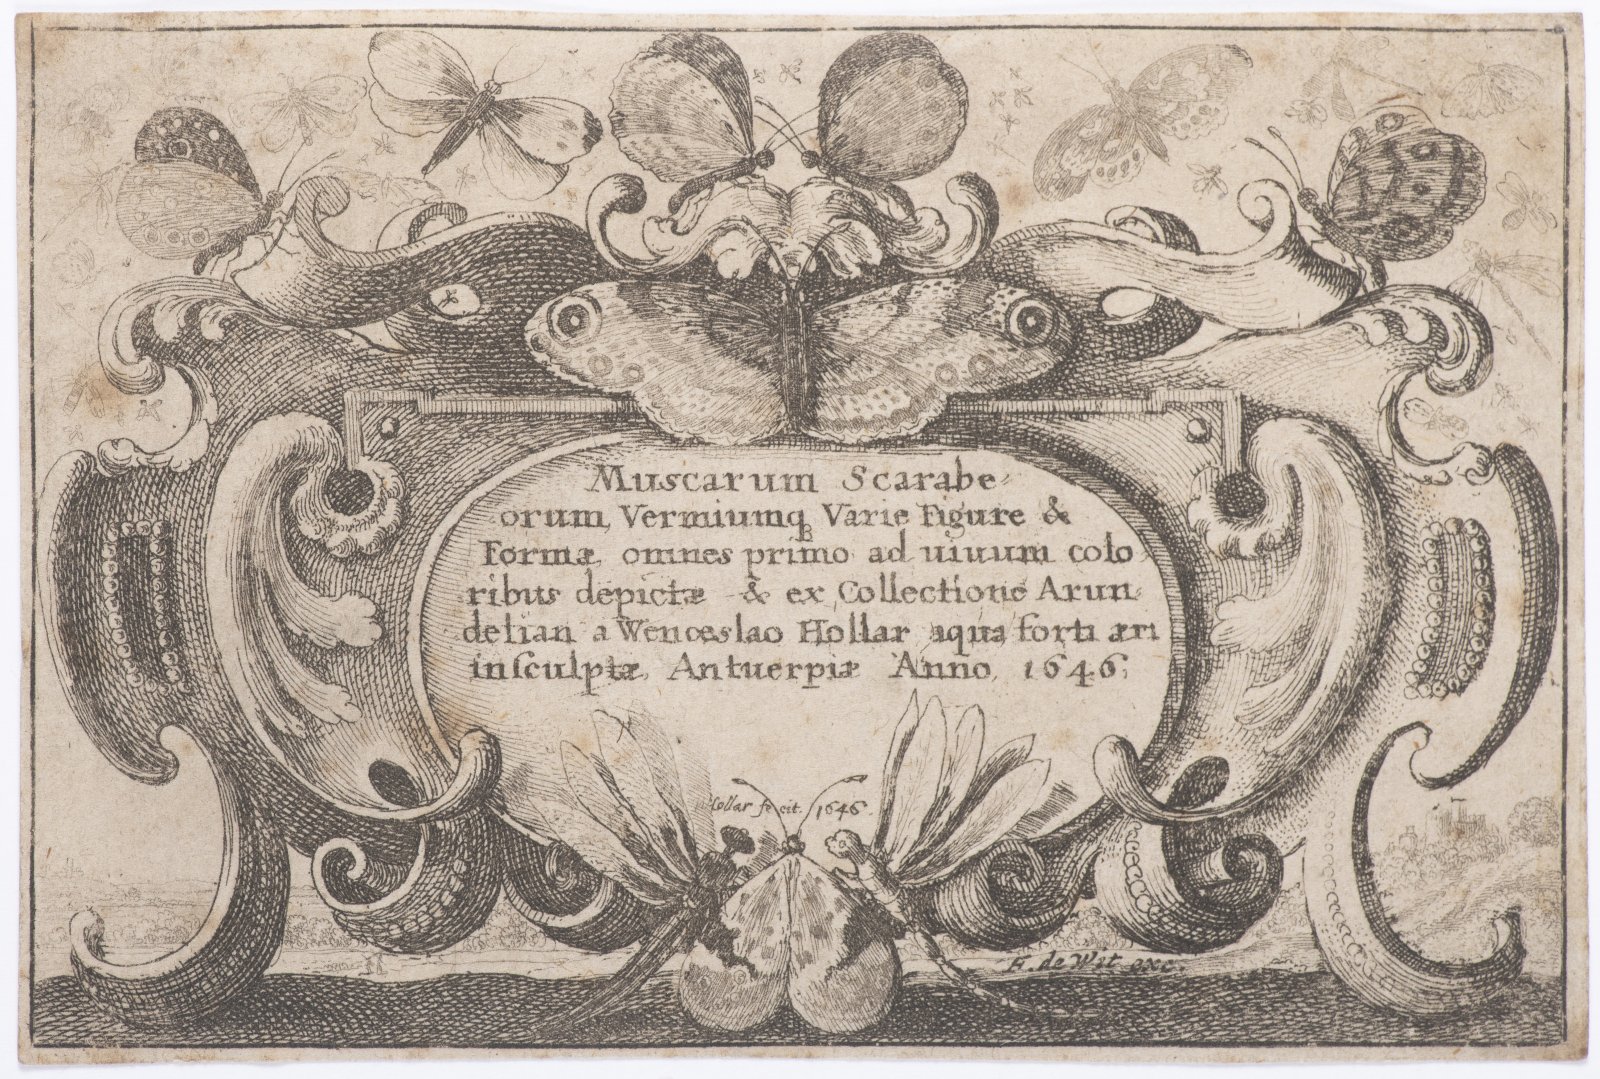 Muscarum Scarabe=
orum, Vermiumq Varie Figure &
Formæ, omnes primo ad uiuum colo
ribus depictæ & ex Collectione Arun
delian a Wenceslao Hollar aqua forti æri
insculptæ, Antuerpiæ Anno, 1646;
Hollar fecit. 1646
F. de Wit exc.